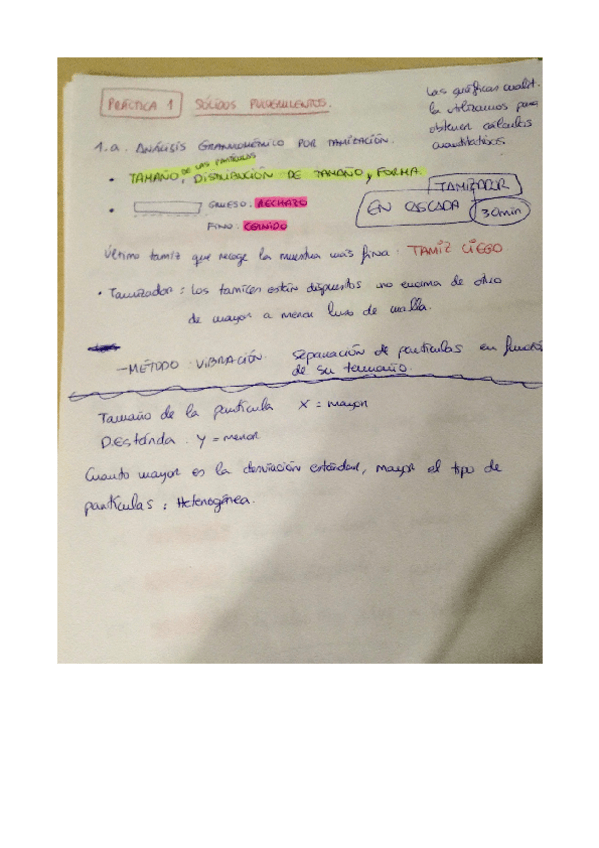 PRÁCTICA 1 SÓLIDOS PULVERULENTOS.
Las gráficas cualit.
la utilizamos para
obtener cálculos
cuantitativos.
1.a. ANÁLISIS GRANULOMÉTRICO POR TAMIZACIÓN.
• TAMAÑO DE LAS PARTÍCULAS, DISTRIBUCIÓN DE TAMAÑO y FORMA.
TAMIZADOR
EN CASCADA 30min
• GRUESO: RECHAZO
FINO: CERNIDO
Último tamiz que recoge la muestra más fina: TAMIZ CIEGO
• Tamizador: Los tamices están dispuestos uno encima de otro
de mayor a menor luz de malla.
- MÉTODO VIBRACIÓN. Separación de partículas en función
de su tamaño.
Tamaño de la partícula X = mayor
D.Estánda. Y = menor
Cuanto mayor es la desviación estándar, mayor el tipo de
partículas: Heterogénea.